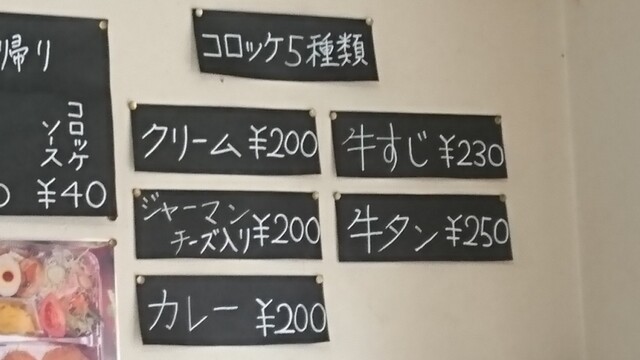 帰り
コロッケ
ソース
¥40
コロッケ5種類
クリーム ¥200
ジャーマン
チーズ入り ¥200
カレー ¥200
牛すじ ¥230
牛タン ¥250